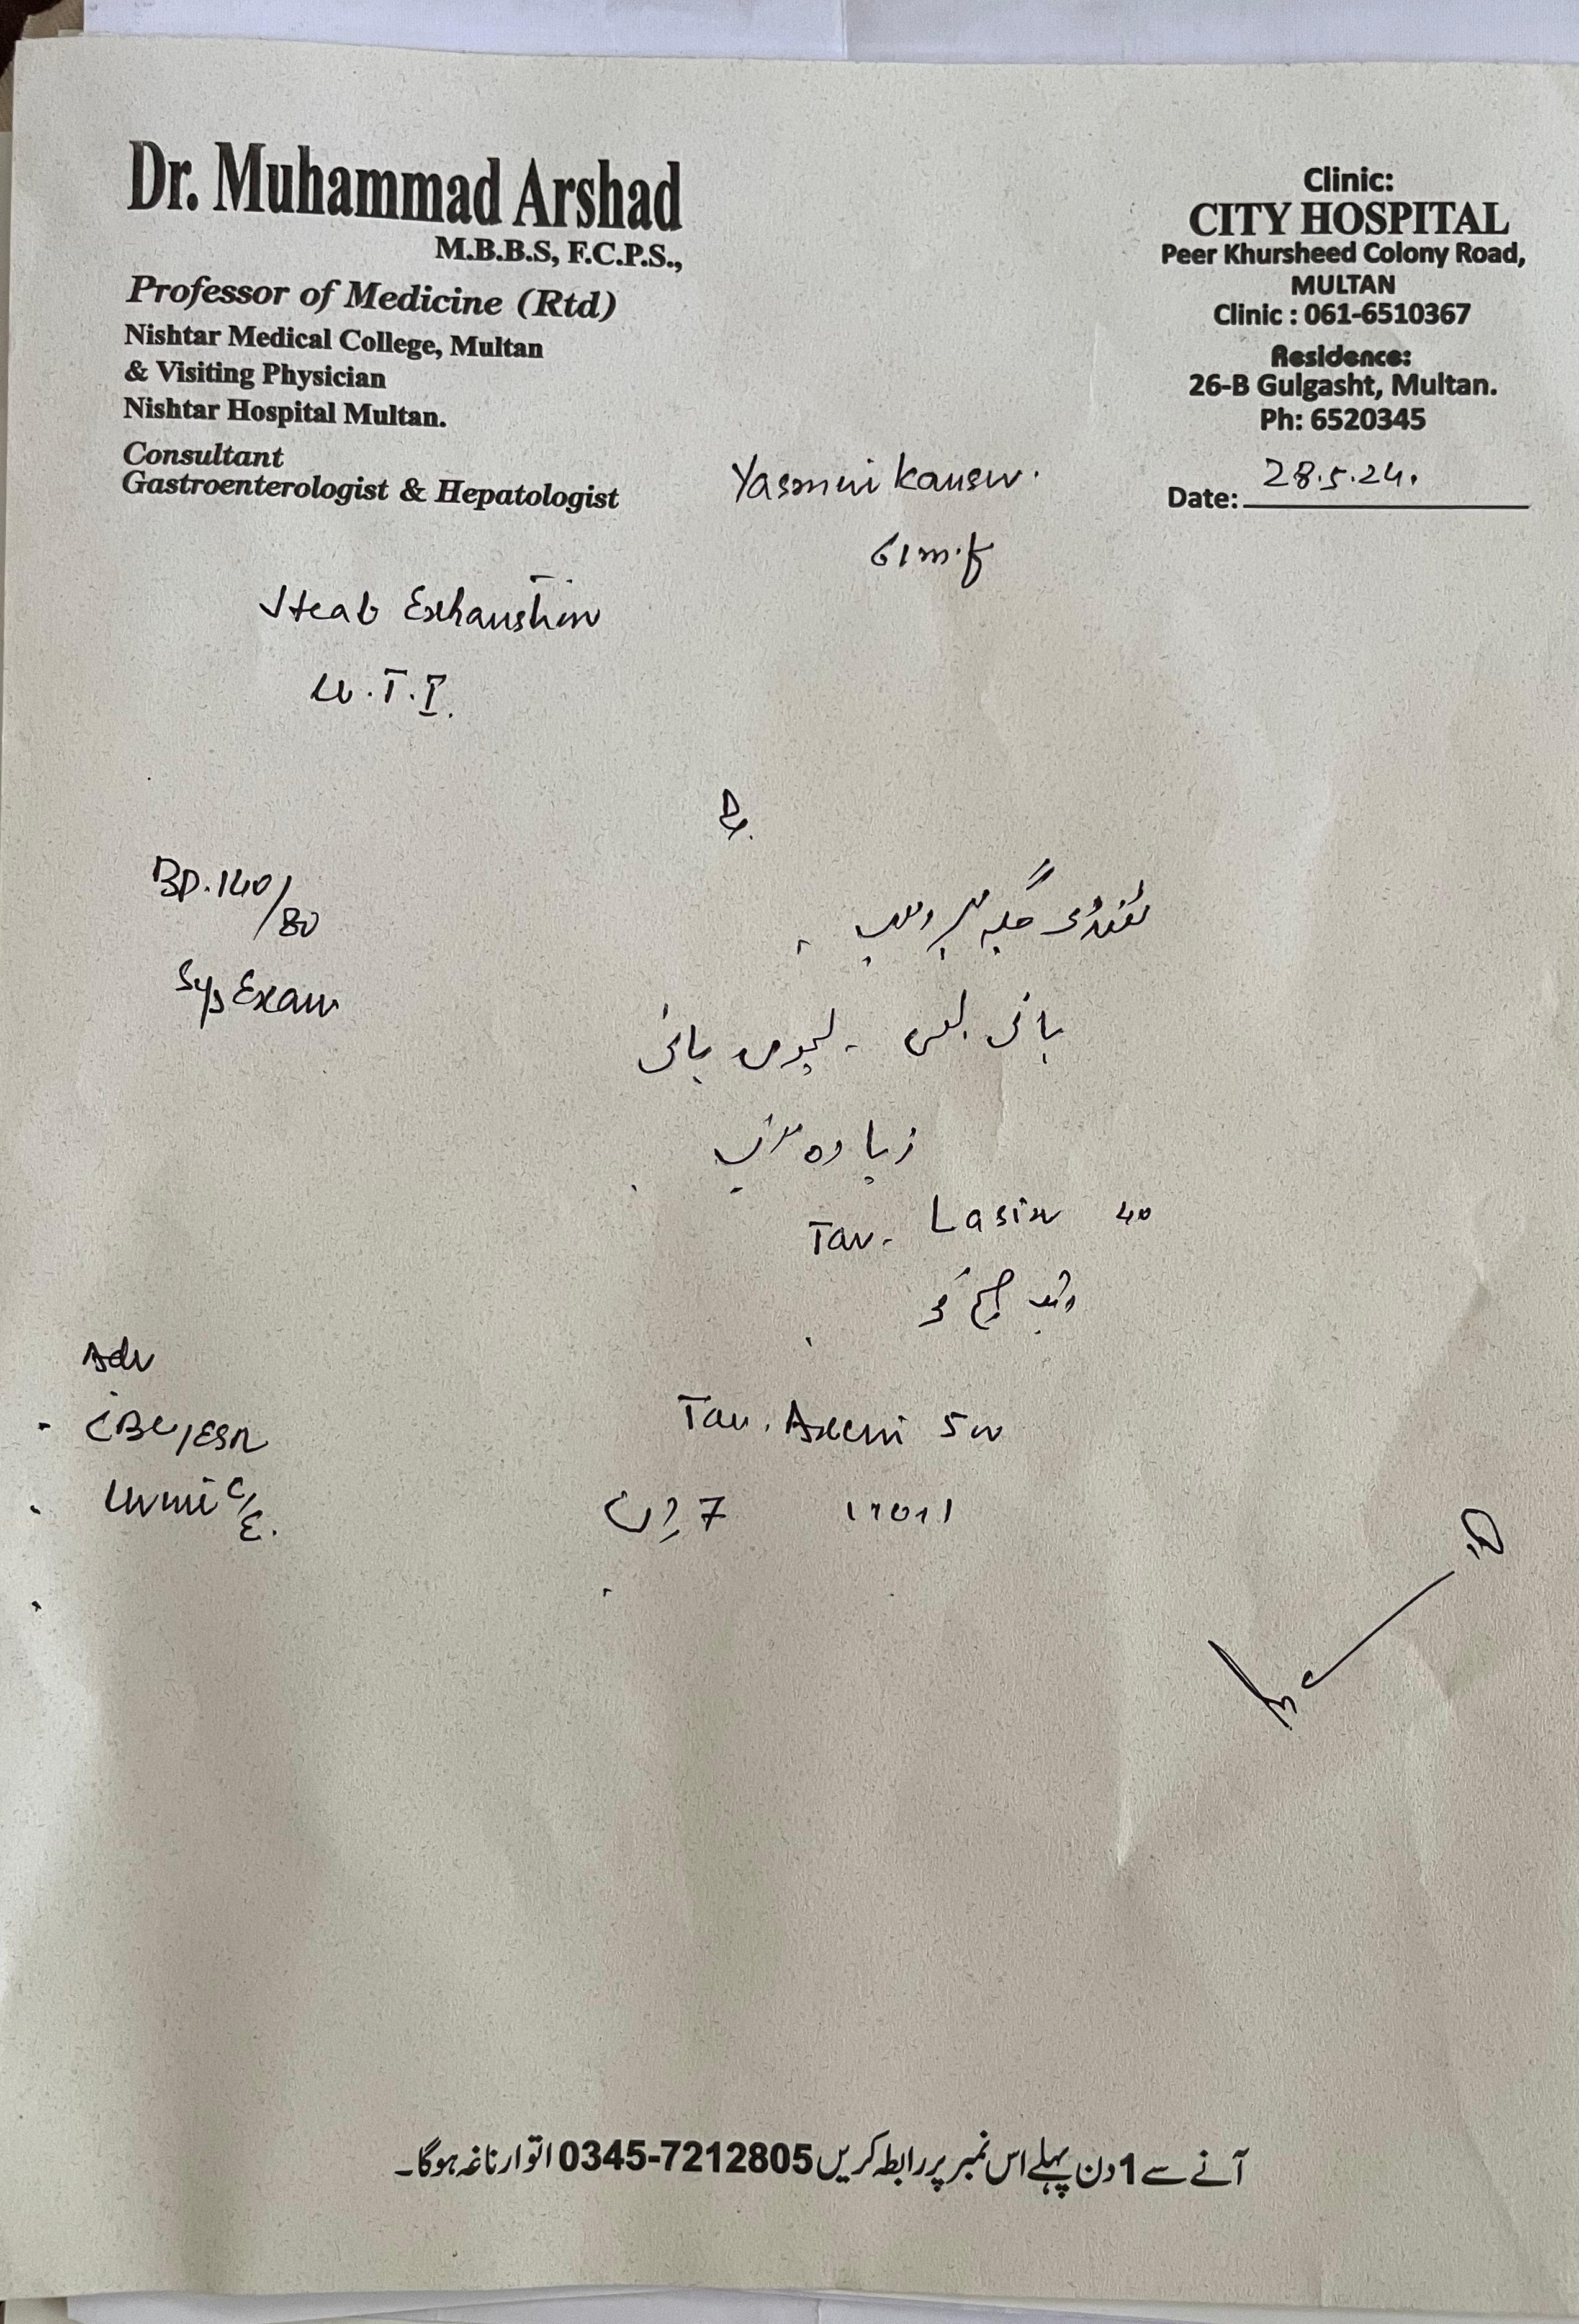 Dr. Muhammad Arshad
M.B.B.S, F.C.P.S.,
Professor of Medicine (Rtd)
Nishtar Medical College, Multan
& Visiting Physician
Nishtar Hospital Multan.
Consultant
Gastroenterologist & Hepatologist
Clinic:
CITY HOSPITAL
Peer Khursheed Colony Road,
MULTAN
Clinic : 061-6510367
Residence:
26-B Gulgasht, Multan.
Ph: 6520345
Date: 28.5.24.
Yasmin Kauser.
Heat Exhaustion
U.T.I.
BP. 140/80
Sys Exam
ٹھنڈی جگہ پر رہیں
پانی لسی - لیموں پانی
زیادہ پئیں
Tab. Lasix 40
صبح کو
Adv
CBC/ESR
Urine C/E.
Tab.
1+0+1 7 دن
آنے سے 1 دن پہلے اس نمبر پر رابطہ کریں 0345-7212805 اتوار ناغہ ہوگا۔